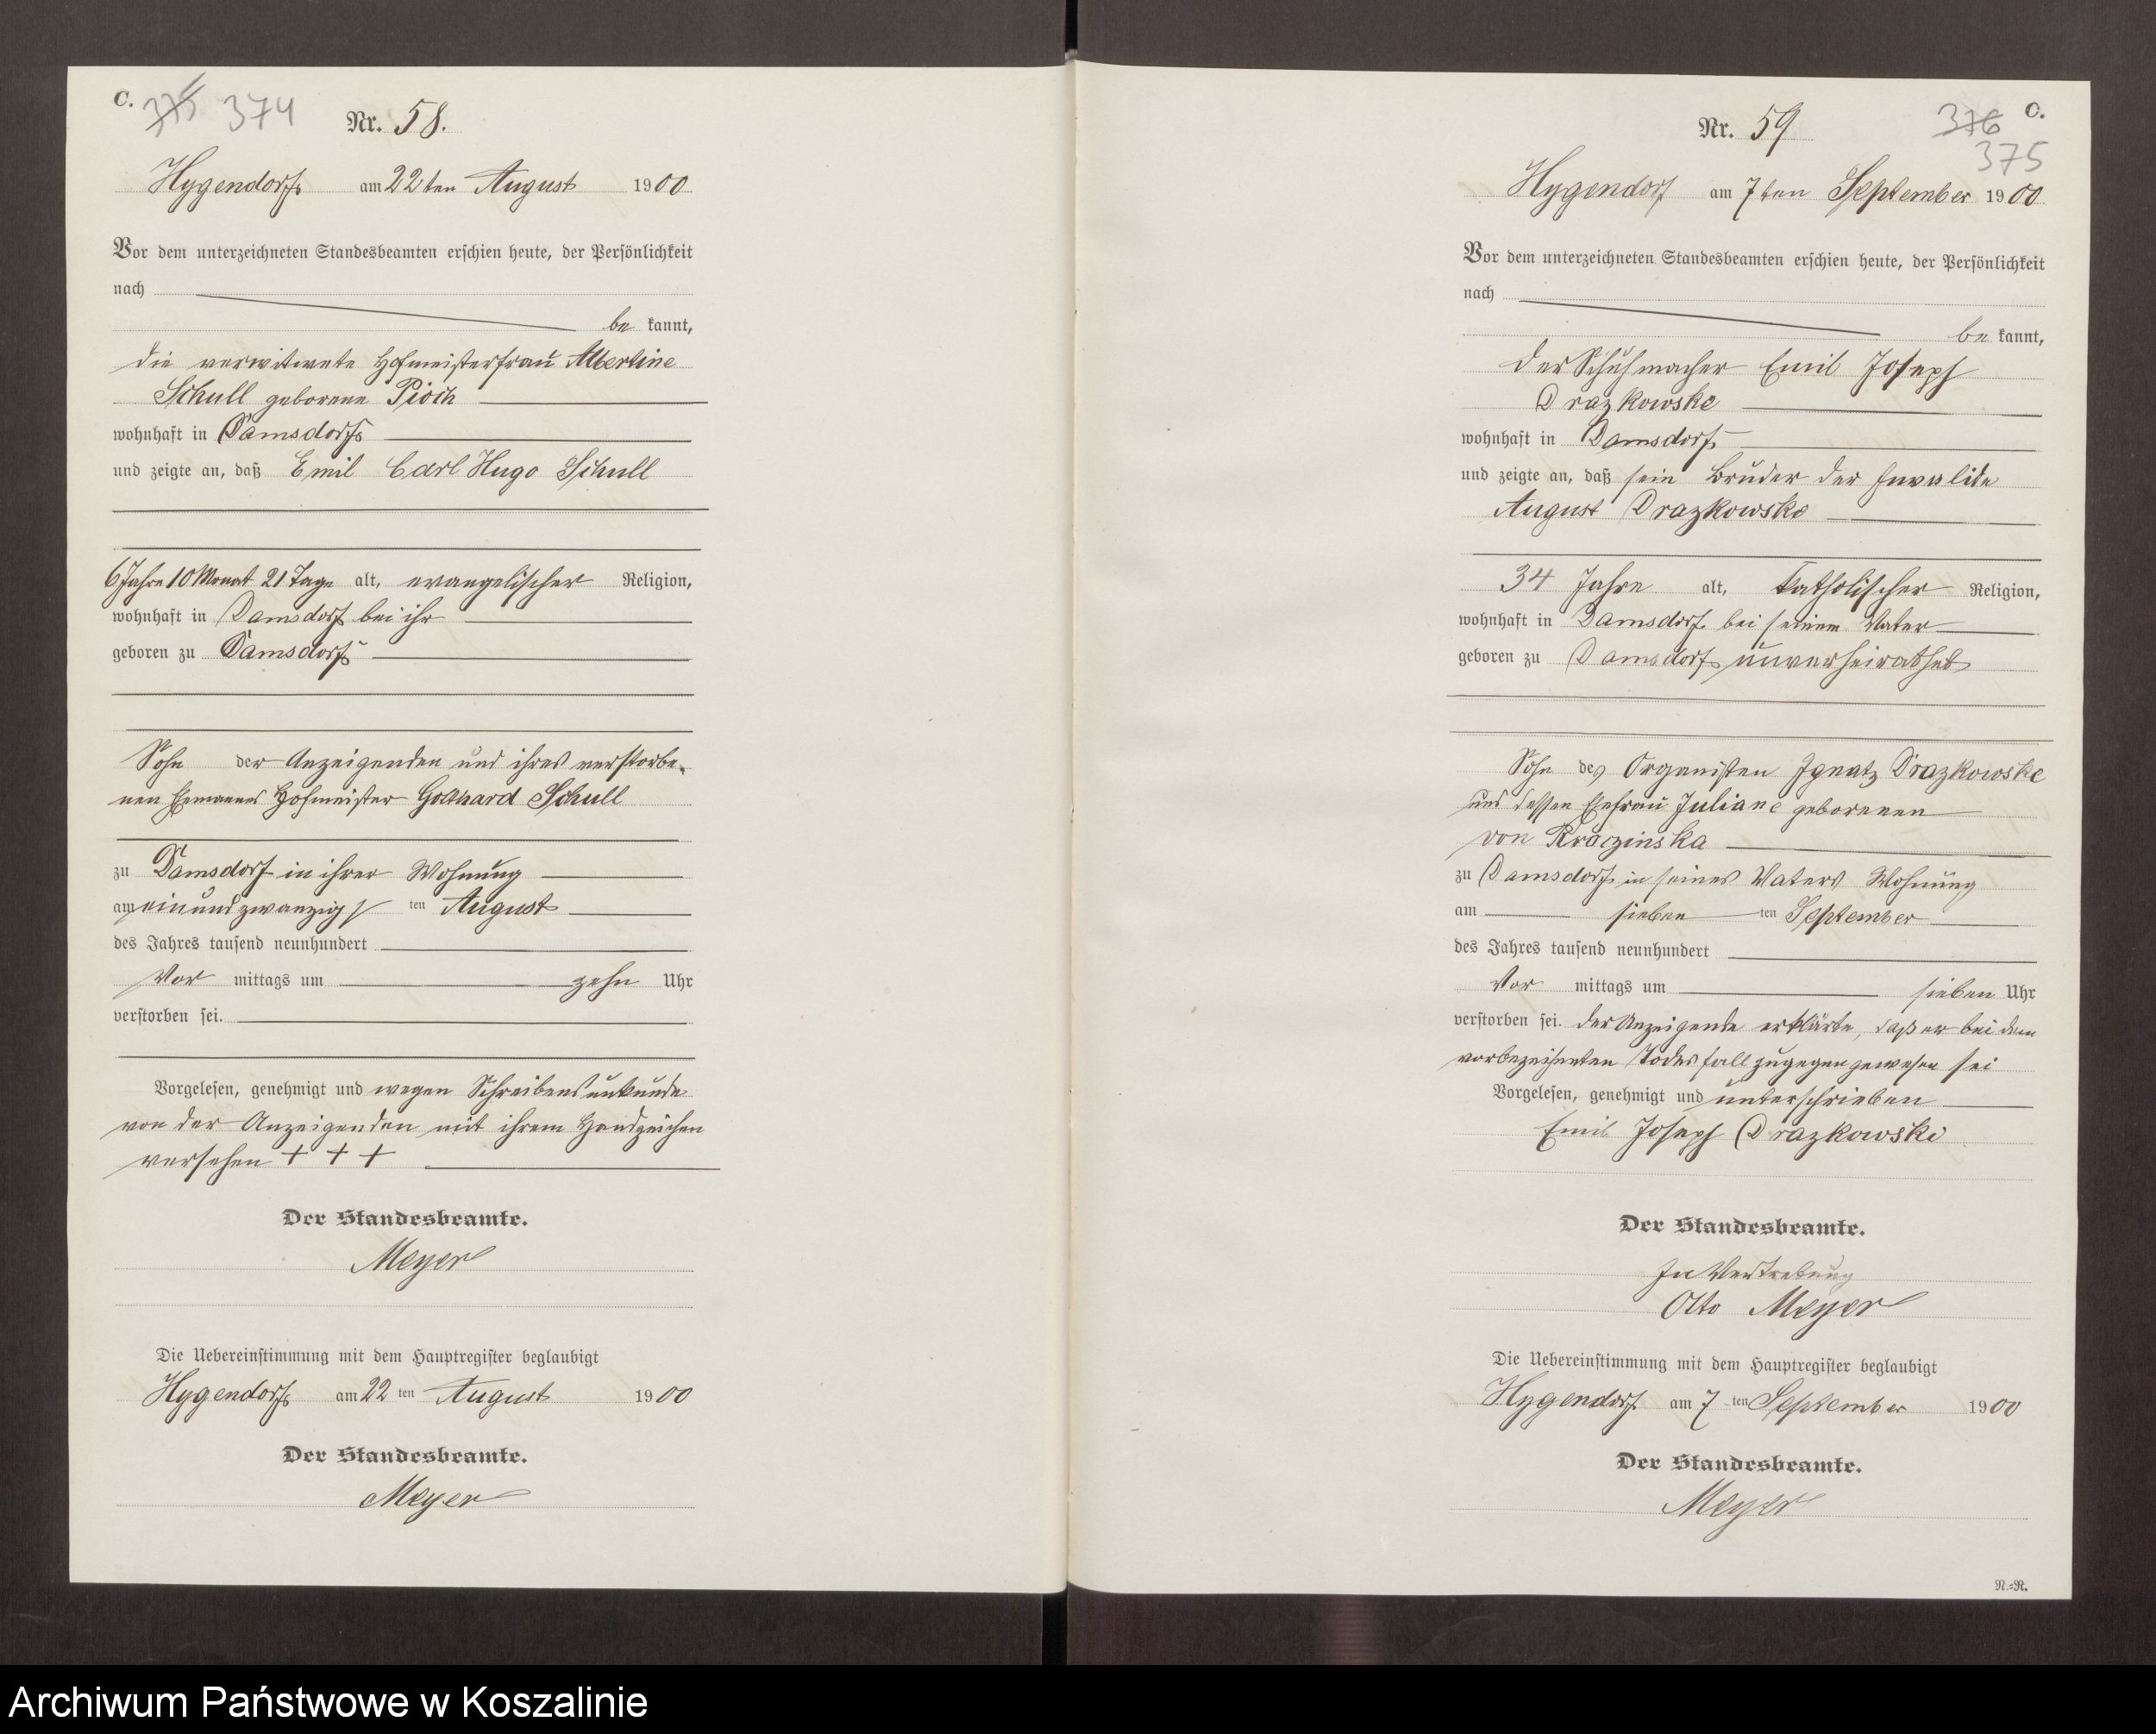 C. 375 374
Nr. 58.
Hygendorf am 22ten August 1900
Vor dem unterzeichneten Standesbeamten erschien heute, der Persönlichkeit
nach
be kannt,
die verwitwete Hofmeisterfrau Albertine
Schull geborene Pioch
wohnhaft in Damsdorf
und zeigte an, daß Emil Carl Hugo Schull
6 Jahre 10 Monat 21 Tage alt, evangelischer Religion,
wohnhaft in Damsdorf bei ihr
geboren zu Damsdorf
Sohn der Anzeigenden und ihres verstorbe-
nen Ehemannes Hofmeister Gotthard Schull
zu Damsdorf in ihrer Wohnung
am einundzwanzig ten August
des Jahres tausend neunhundert
Vor mittags um zehn Uhr
verstorben sei.
Vorgelesen, genehmigt und wegen Schreibensunkunde
von der Anzeigenden mit ihrem Handzeichen
versehen + + +
Der Standesbeamte.
Meyer
Die Uebereinstimmung mit dem Hauptregister beglaubigt
Hygendorf am 22 ten August 1900
Der Standesbeamte.
Meyer
376 C.
375
Nr. 59
Hygendorf am 7ten September 1900
Vor dem unterzeichneten Standesbeamten erschien heute, der Persönlichkeit
nach
be kannt,
der Schuhmacher Emil Joseph
Drazkowske
wohnhaft in Damsdorf
und zeigte an, daß sein Bruder der Invalide
August Drazkowske
34 Jahre alt, katholischer Religion,
wohnhaft in Damsdorf bei seinem Vater
geboren zu Damsdorf unverheirathet
Sohn des Organisten Ignatz Drazkowske
und dessen Ehefrau Juliane geborenen
von Kraczinska
zu Damsdorf in seines Vaters Wohnung
am sieben ten September
des Jahres tausend neunhundert
Vor mittags um sieben Uhr
verstorben sei. Der Anzeigende erklärte, daß er bei dem
vorbezeichneten Todesfall zugegen gewesen sei
Vorgelesen, genehmigt und unterschrieben
Emil Joseph Drazkowski
Der Standesbeamte.
In Vertretung
Otto Meyer
Die Uebereinstimmung mit dem Hauptregister beglaubigt
Hygendorf am 7 ten September 1900
Der Standesbeamte.
Meyer
N.=R.
Archiwum Państwowe w Koszalinie